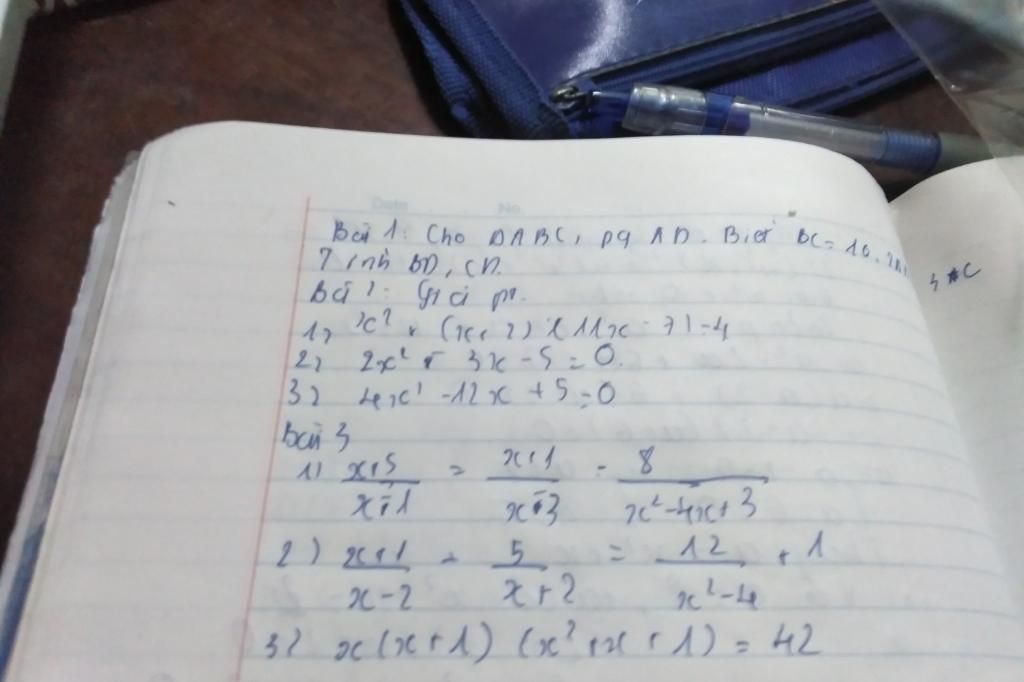 Date No.
Bài 1: Cho ΔABC, pg AD. Biết BC = 10,
Tính BD, CD.
Bài 2: Giải pt.
1) x² + (x+2)(11x-7) = 4
2) 2x² + 3x - 5 = 0.
3) 4x² - 12x + 5 = 0
Bài 3
1) x+5/x-1 = x+1/x-3 - 8/x²-4x+3
2) x+1/x-2 - 5/x+2 = 12/x²-4 + 1
3) x(x+1) (x²+x+1) = 42